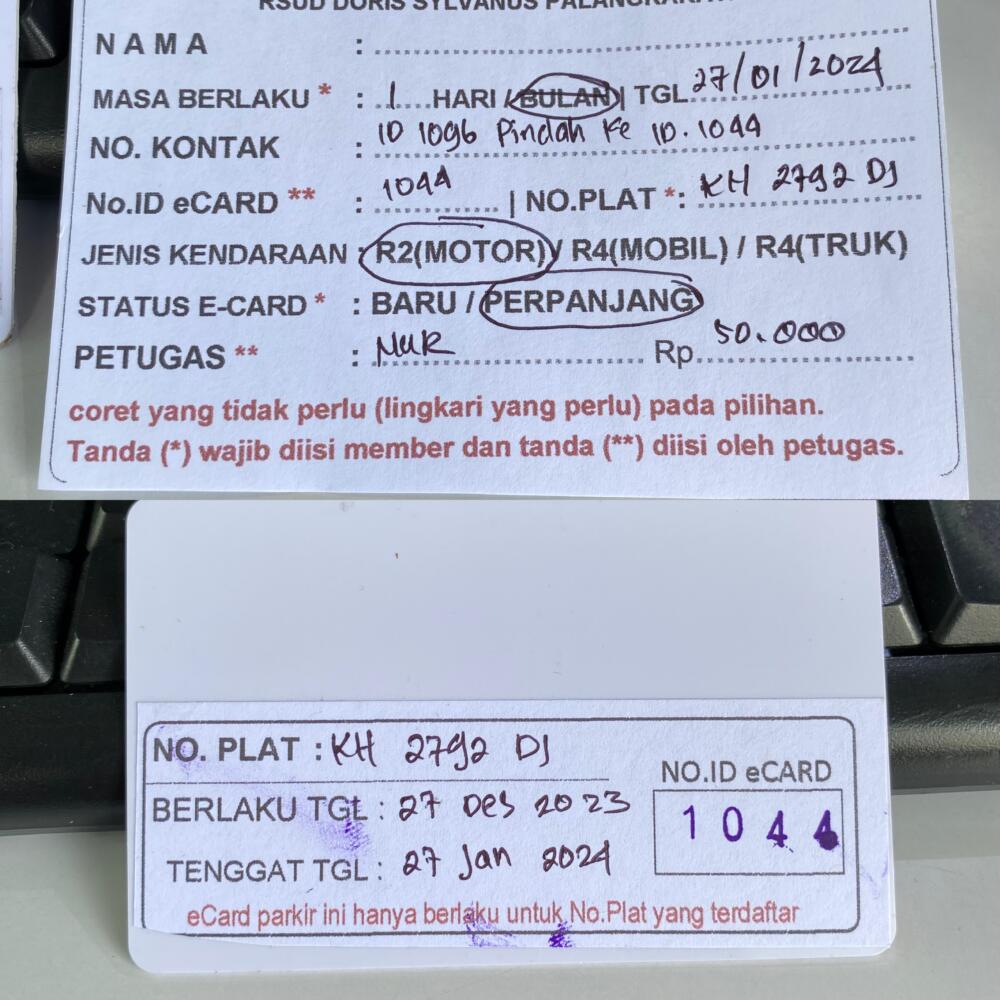 RSUD DORIS SYLVANUS PALANGKARAYA
N A M A :
MASA BERLAKU * : 1 HARI / BULAN | TGL 27/01/2024
NO. KONTAK : ID 1096 Pindah Ke ID. 1044
No.ID eCARD ** : 1044 | NO.PLAT *: KH 2792 DJ
JENIS KENDARAAN : R2(MOTOR) / R4(MOBIL) / R4(TRUK)
STATUS E-CARD * : BARU / PERPANJANG
PETUGAS ** : NUR Rp 50.000
coret yang tidak perlu (lingkari yang perlu) pada pilihan.
Tanda (*) wajib diisi member dan tanda (**) diisi oleh petugas.
NO. PLAT : KH 2792 DJ
NO.ID eCARD
1044
BERLAKU TGL : 27 Des 2023
TENGGAT TGL : 27 Jan 2024
eCard parkir ini hanya berlaku untuk No.Plat yang terdaftar